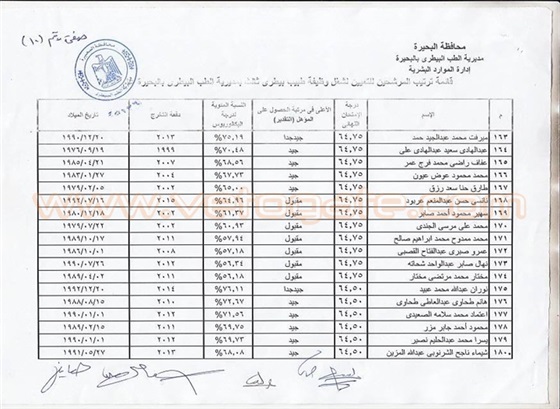 صفحة رقم (١٠)
محافظة البحيرة
مديرية الطب البيطرى بالبحيرة
إدارة الموارد البشرية
قائمة ترتيب المرشحين للتعيين لشغل وظيفة طبيب بيطرى ثالث بمديرية الطب البيطرى بالبحيرة
م الإسم درجة الإمتحان النهائى الأعلى فى مرتبة الحصول على المؤهل (التقدير) النسبة المئوية لدرجة البكالوريوس دفعة التخرج تاريخ الميلاد
١٦٣ ميرفت محمد عبدالجيد حمد ٦٤,٧٥ جيدجدا %٧٥,١٩ ٢٠١٣ ١٩٩٠/١٢/٢٠
١٦٤ عبدالهادى سعيد عبدالهادى على ٦٤,٧٥ جيد %٧٠,٤٨ ١٩٩٩ ١٩٧٦/٠٩/١٩
١٦٥ عفاف راضى محمد فرج عمر ٦٤,٧٥ جيد %٦٨,٥٦ ٢٠٠٧ ١٩٨٥/٠٤/٢١
١٦٦ محمد محمود عوض عيون ٦٤,٧٥ جيد %٦٧,٧٣ ٢٠٠٤ ١٩٨٣/٠١/٢٧
١٦٧ طارق حنا سعد رزق ٦٤,٧٥ جيد %٦٥,٠٠ ٢٠٠٢ ١٩٧٩/٠٢/٠٥
١٦٨ نانسى حسن عبدالمنعم عربود ٦٤,٧٥ مقبول %٦٤,٩١ ٢٠١٤ ١٩٩٢/٠٧/١٦
١٦٩ سهير محمود أحمد صابر ٦٤,٧٥ مقبول %٦١,٣٣ ٢٠٠٢ ١٩٨٠/٠١/١٨
١٧٠ محمد على مرسى الجندى ٦٤,٧٥ مقبول %٦٠,٩٣ ٢٠٠٢ ١٩٧٩/٠٧/٢٢
١٧١ محمد ممدوح محمد ابراهيم صالح ٦٤,٧٥ مقبول %٥٧,٩٤ ٢٠١١ ١٩٨٩/١٠/١٧
١٧٢ عمرو صبرى عبدالفتاح القصبى ٦٤,٧٥ مقبول %٥٧,١٨ ٢٠٠٨ ١٩٨٦/١٠/٠١
١٧٣ نهال صابر عبدالواحد شحاته ٦٤,٧٥ مقبول %٥٦,٤٢ ٢٠١٢ ١٩٩٠/٠٧/٢٦
١٧٤ مختار محمد مرتضى مختار ٦٤,٧٥ مقبول %٥٦,١٨ ٢٠١١ ١٩٨٩/٠٤/٠٢
١٧٥ نوران عبدالله محمد عبيد ٦٤,٥٠ جيدجدا %٧٦,٩١ ٢٠١٤ ١٩٩٢/١٢/٢٠
١٧٦ هانم طحاوى عبدالعاطى طحاوى ٦٤,٥٠ جيد %٧٢,٦٧ ٢٠١٠ ١٩٨٨/٠٨/١٥
١٧٧ اعتماد محمد سلامه الصعيدى ٦٤,٥٠ جيد %٧١,٥٦ ٢٠١٢ ١٩٩٠/٠١/٠١
١٧٨ محمود أحمد جابر مزر ٦٤,٥٠ جيد %٦٩,٧٥ ٢٠١١ ١٩٨٩/٠٢/١٥
١٧٩ يسرا محمد عبدالحليم نصير ٦٤,٥٠ جيد %٦٩,٧٣ ٢٠١٢ ١٩٩٠/٠١/٠١
١٨٠ شيماء ناجح الشرنوبى عبدالله المزين ٦٤,٥٠ جيد %٦٨,٠٨ ٢٠١٣ ١٩٩١/٠٥/٢٧